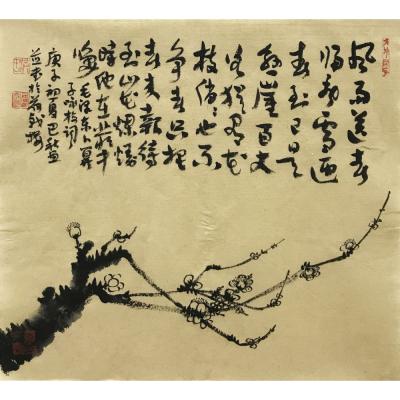 风雨送春
归飞雪迎
春到已是
悬崖百丈
冰犹有花
枝俏〻也不
争春只把
春来報待
到山花爛熳
時她在丛中
笑 毛泽东卜算
子咏梅词
庚子初夏巴秋画
並书於